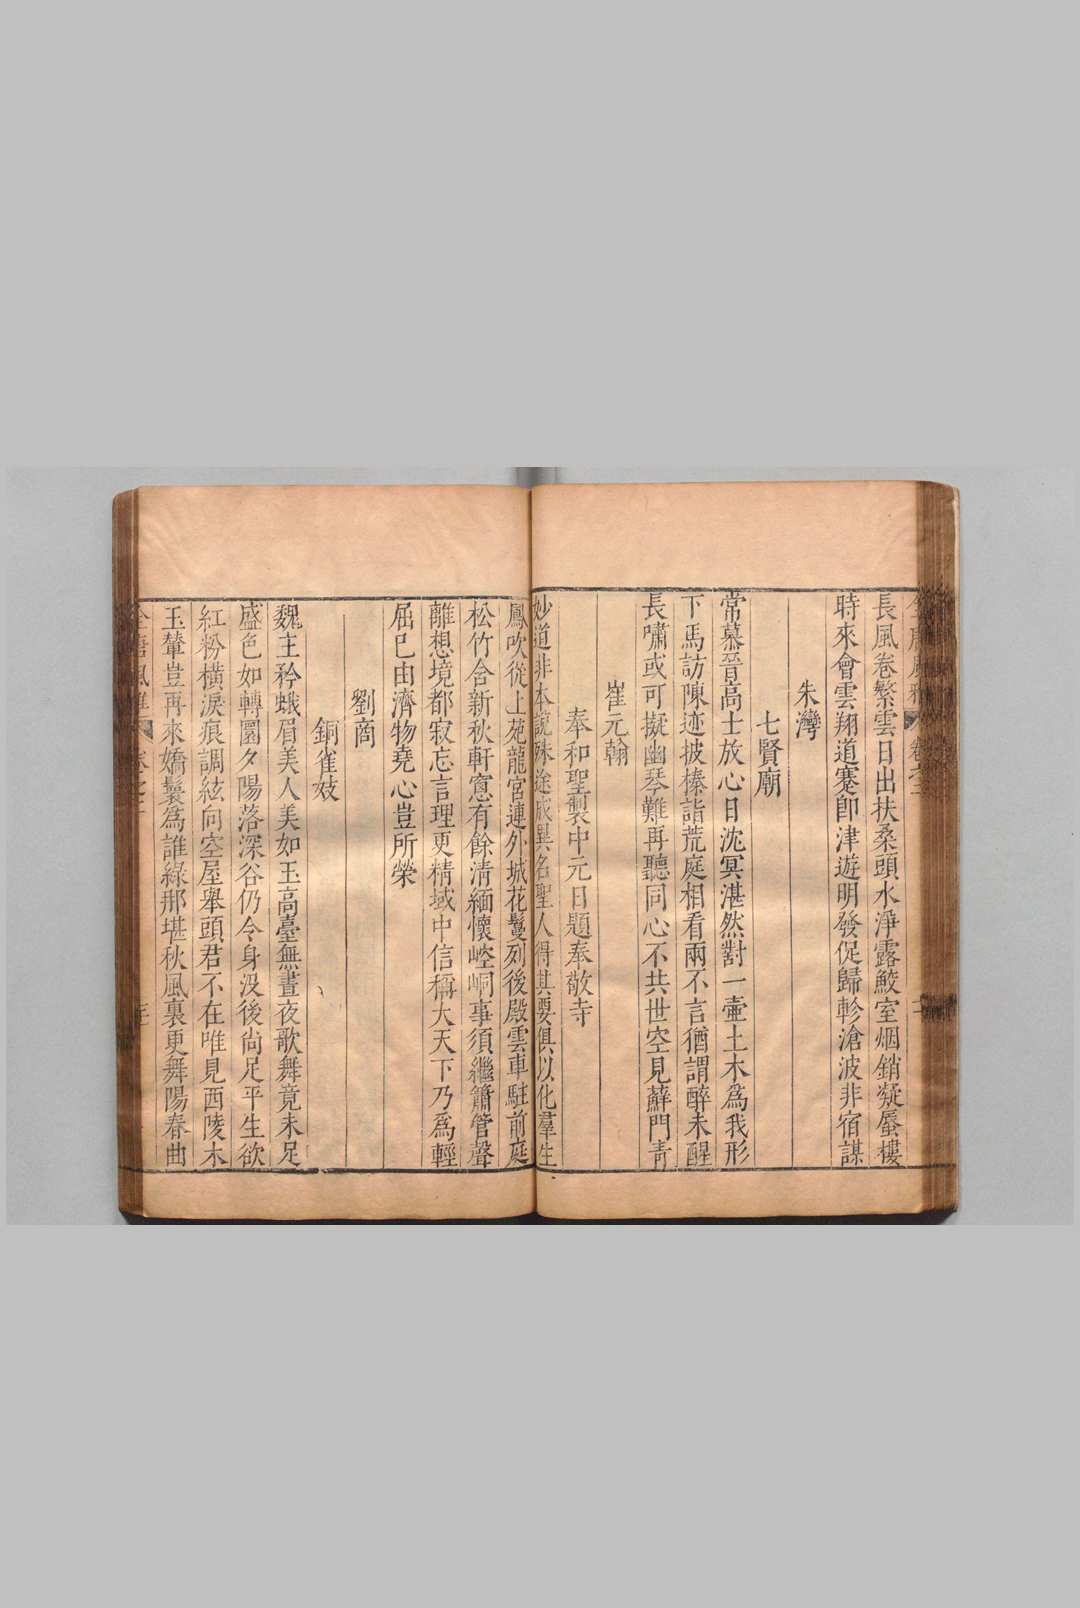 長風卷繁雲日出扶桑頭水淨露鮫室烟銷凝蜃樓
時來會雲翔道蹇卽津遊明發促歸軫滄波非宿謀
朱灣
七賢廟
常慕晉高士放心日沈冥湛然對一壷土木爲我形
下馬訪陳迹披榛詣荒庭相看兩不言猶謂醉未醒
長嘯或可擬幽琴難再聽同心不共世空見蘚門靑
崔元翰
奉和聖製中元日題奉敬寺
妙道非本說殊途成異名聖人得其要俱以化羣生
鳳吹從上苑龍宮連外城花鬘列後殿雲車駐前庭
松竹含新秋軒窻有餘淸緬懷崆峒事須繼簫管聲
離想境都寂忘言理更精域中信稱大天下乃爲輕
屈已由濟物堯心豈所榮
劉商
銅雀妓
魏主矜蛾眉美人美如玉高臺無晝夜歌舞竟未足
盛色如轉圜夕陽落深谷仍令身沒後尚足平生欲
紅粉橫淚痕調絃向空屋舉頭君不在唯見西陵木
玉輦豈再來嬌鬟爲誰綠那堪秋風裏更舞陽春曲
全唐風雅 卷之三